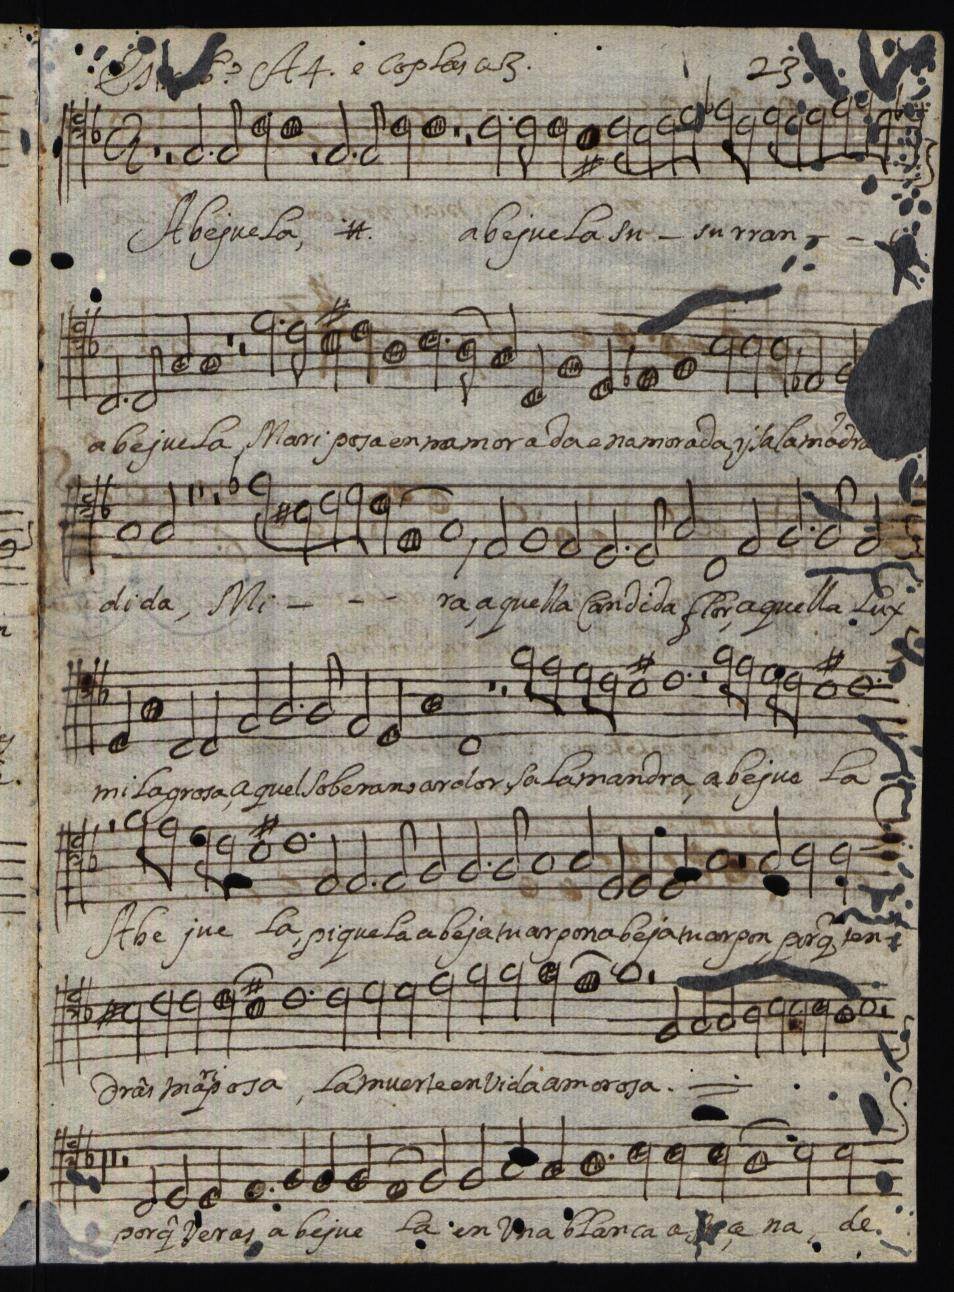 A 4. e coplas a 3. 23
Abejuela, abejuela su - surran - - -
abejuela, Mari posa ennamorada enamorada, y sala
dida, Mi - - - ra, aquella Candida flor, aquella Lux
milagrosa, aquel soberano ardor, Salamandra, abejue la
Abe jue la, pique la abeja tu arpon abeja tu arpon porq̃ ten-
drâs posa, la muerte en vida amorosa.
porq̃ Veras, abejue la en Vna blanca na, de